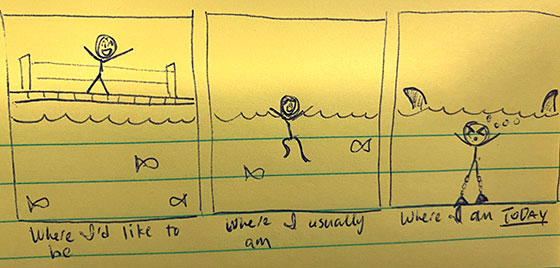 Where I'd like to
be
Where I usually
am
Where I am TODAY